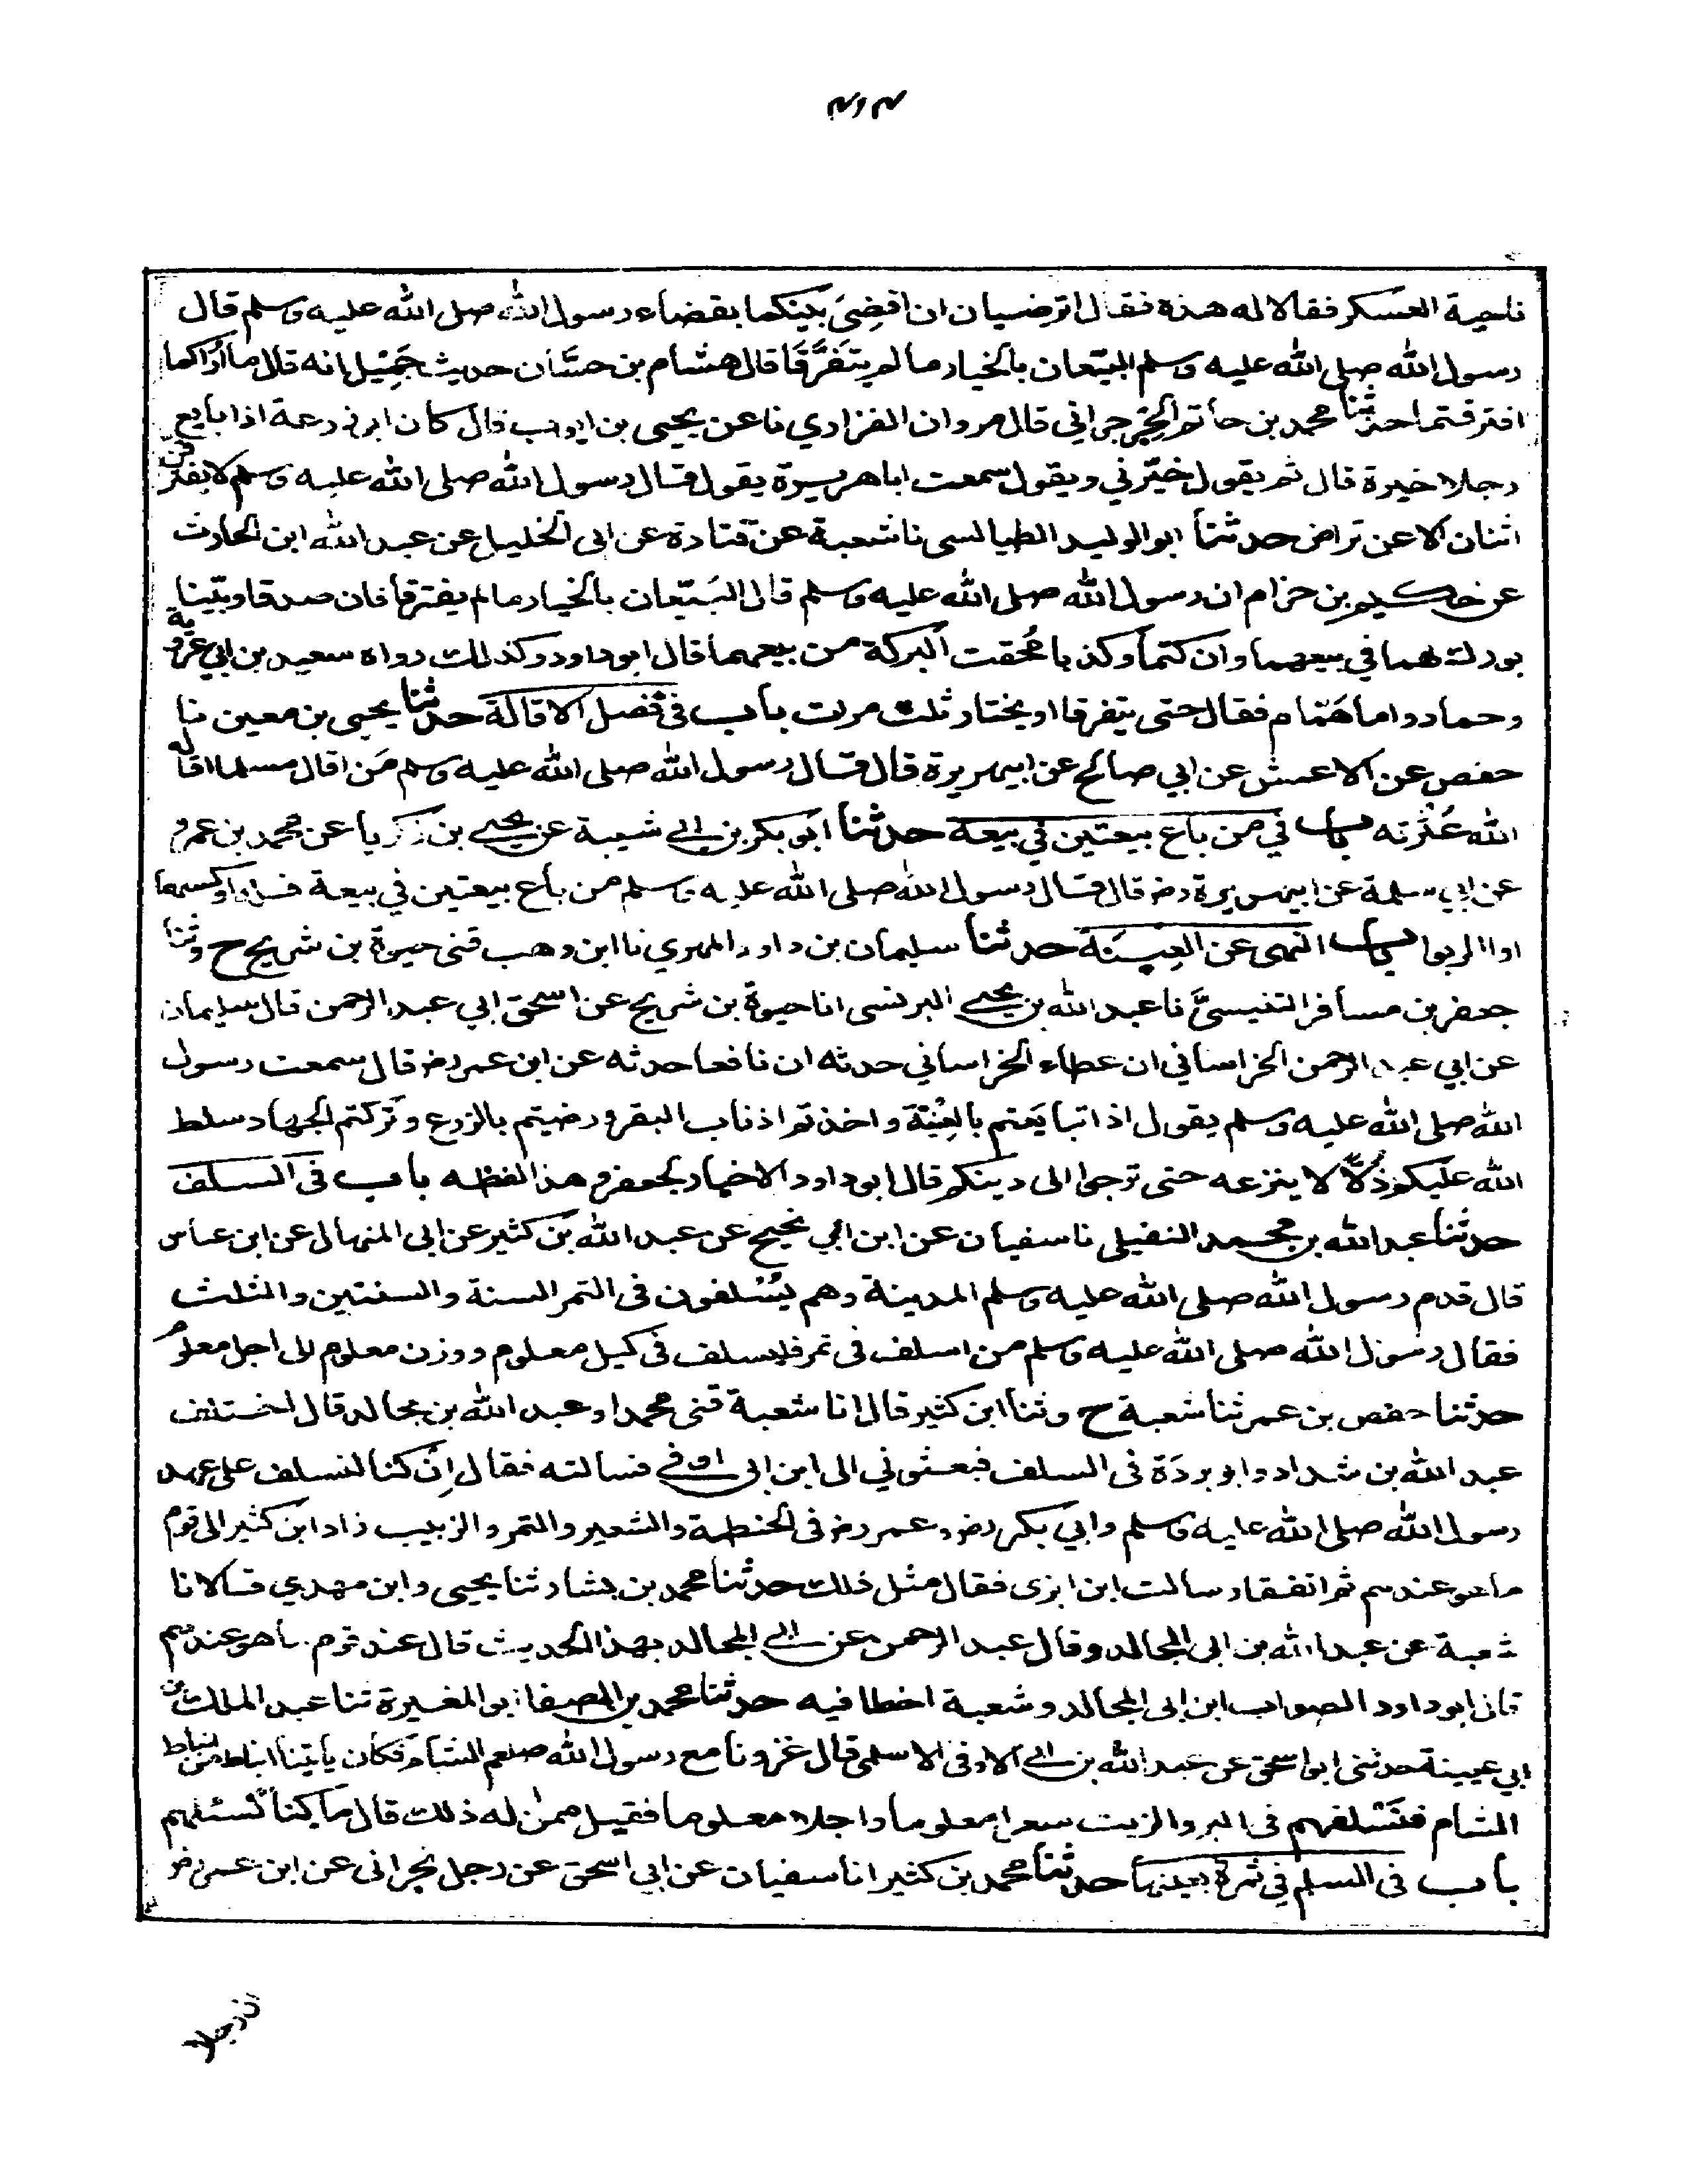 ناحية العسكر فقالا له هذه فقال اترضيان ان اقضِىَ بينكما بقضاء رسول الله صلى الله عليه وسلم قال
رسول الله صلى الله عليه وسلم البيّعان بالخيار ما لم يتَفَرَّقَا قال هشام بن حسَّان حديث جَمِيْل انه قال ما أُرَاكما
افترقتما حدثنا محمد بن حاتم الجَرجرائي قال مروان الفزاري نا عن يحيى بن ايوب قال كان ابو زرعة اذا بايع
رجلا خيرة قال ثم يقول خيّرني ويقول سمعت ابا هريرة يقول قال رسول الله صلى الله عليه وسلم لا يفترقنّ
اثنان الا عن تراض حدثنا ابو الوليد الطيالسي نا شعبة عن قتادة عن ابي الخليل عن عبد الله ابن الحارث
عن حكيم بن حزام ان رسول الله صلى الله عليه وسلم قال البَيّعان بالخيار ما لم يفترقا فان صدقا وبيّنا
بورك لهما في بيعهما وان كتما وكذبا مُحقت البركة من بيعهما قال ابو داود وكذلك رواه سعيد بن ابي عروبة
وحماد واما هَمّام فقال حتى يتفرقا او يختار ثلث مرات باب في فضل الاقالة حدثنا يحيى بن معين نا
حفص عن الاعمش عن ابي صالح عن ابيهريرة قال قال رسول الله صلى الله عليه وسلم مَن اقال مسلما اقاله
الله عَثْرَته باب في من باع بيعتين في بيعة حدثنا ابو بكر بن ابي شيبة عن يحيى بن زكريا عن محمد بن عمرو
عن ابي سلمة عن ابيهريرة رض قال قال رسول الله صلى الله عليه وسلم من باع بيعتين في بيعة فله اوكسهما
او الربوا باب النهى عن العِيْنَة حدثنا سليمان بن داود المهري نا ابن وهب قثنى حيوة بن شريح ح وثنا
جعفر بن مسافر التنيسيَّ نا عبد الله بن يحيى البرلسي انا حيوة بن شريح عن اسحق ابي عبد الرحمن قال سليمان
عن ابي عبد الرحمن الخراساني ان عطاء الخراساني حدثه ان نافعا حدثه عن ابن عمر رض قال سمعت رسول
الله صلى الله عليه وسلم يقول اذا تبايَعتم بالعِيْنَة واخذتم اذناب البقر ورضيتم بالزرع وتركتم الجهاد سلط
الله عليكم ذُلّاً لا ينزعه حتى ترجعوا الى دينكم قال ابو داود الاخبار لجعفر وهذا لفظه باب في السلف
حدثنا عبد الله بن محمد النفيلي نا سفيان عن ابن ابي نجيح عن عبد الله بن كثير عن ابي المنهال عن ابن عباس
قال قدم رسول الله صلى الله عليه وسلم المدينة وهم يُسْلفون في التمر السنة والسنتين والثلث
فقال رسول الله صلى الله عليه وسلم من اسلف في تمر فليسلف في كيل معلوم ووزن معلوم الى اجل معلوم
حدثنا حفص بن عمر ثنا شعبة ح وثنا ابن كثير قال انا شعبة قثنى محمد او عبد الله بن مجالد قال اختلف
عبد الله بن شداد وابو بردَة في السلف فبعثوني الى ابن ابي اوفى فسالته فقال اِنْ كنا لنسلف على عهد
رسول الله صلى الله عليه وسلم وابي بكر رض وعمر رض في الحنطة والشعير والتمر والزبيب زاد ابن كثير الى قوم
ما هو عندهم ثم اتفقا وسالت ابن ابزى فقال مثل ذلك حدثنا محمد بن بشار ثنا يحيى وابن مهدي قالا نا
شعبة عن عبد الله بن ابي المجالد وقال عبد الرحمن عن ابي المجالد بهذا الحديث قال عند قوم ما هو عندهم
قال ابو داود الصواب ابن ابي المجالد وشعبة اخطا فيه حدثنا محمد بن المصفا ابو المغيرة ثنا عبد الملك بن
ابي عيينة حدثنى ابو اسحق عن عبد الله بن ابي الاوفى الاسلمى قال غزونا مع رسول الله صلعم الشام فكان ياتينا انباط من انباط
الشام فنَسْلفهم في البر والزيت سعرا معلوما واجلا معلوما فقيل ممن له ذلك قال ما كنا نسئلهم
باب في السلم في ثمرة بعينها حدثنا محمد بن كثير انا سفيان عن ابي اسحق عن رجل نجراني عن ابن عمر رض
ان رجلا